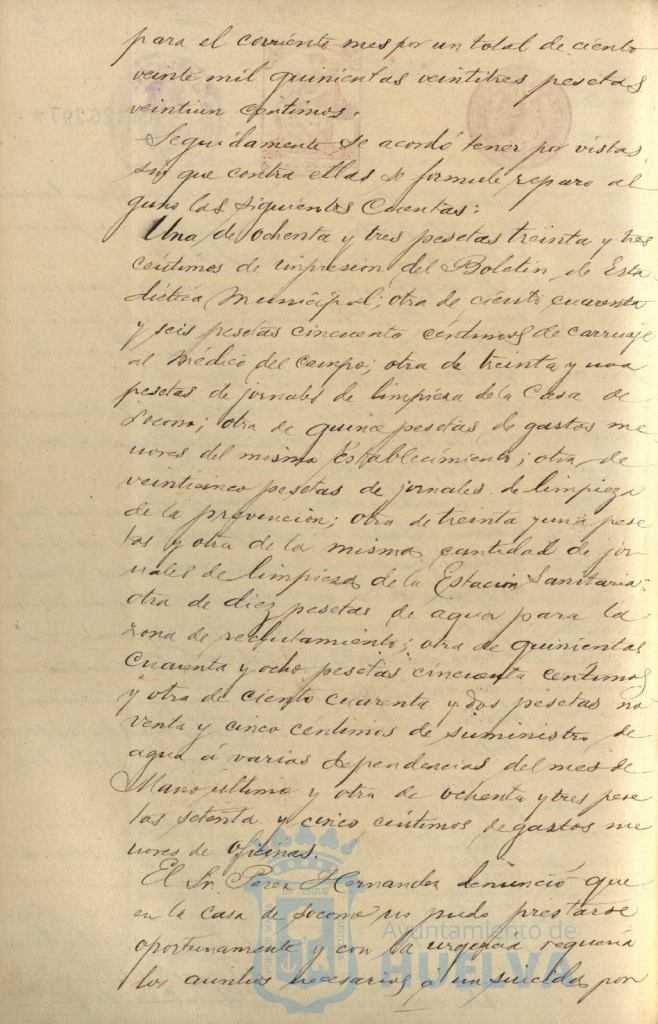 para el corriente mes por un total de ciento
veinte mil quinientas veintitres pesetas
veintiun centimos.
Seguidamente se acordó tener por vistas
sin que contra ellas se formule reparo al
guno las siguientes Cuentas:
Una de ochenta y tres pesetas treinta y tres
centimos de impresion del Boletin de Esta
distica Municipal; otra de ciento cuarenta
y seis pesetas cincuenta centimos de carruaje
al Médico del Campo; otra de treinta y una
pesetas de jornales de limpieza de la Casa de
Socorro; otra de quince pesetas de gastos me
nores del mismo Establecimiento; otra de
veinticinco pesetas de jornales de limpieza
de la prevencion; otra de treinta y una pese
tas y otra de la misma cantidad de jor
nales de limpieza de la Estacion Sanitaria;
otra de diez pesetas de agua para la
zona de reclutamiento; otra de quinientas
cuarenta y ocho pesetas cincuenta centimos
y otra de ciento cuarenta y dos pesetas no
venta y cinco centimos de suministro de
agua á varias dependencias del mes de
último y otra de ochenta y tres pese
tas setenta y cinco centimos de gastos me
nores de oficinas.
El Sr. Perez Hernandez denunció que
en la casa de socorro no pudo prestarse
oportunamente y con la urgencia requeria
los auxilios necesarios á un suicida por
Ayuntamiento de
HUELVA